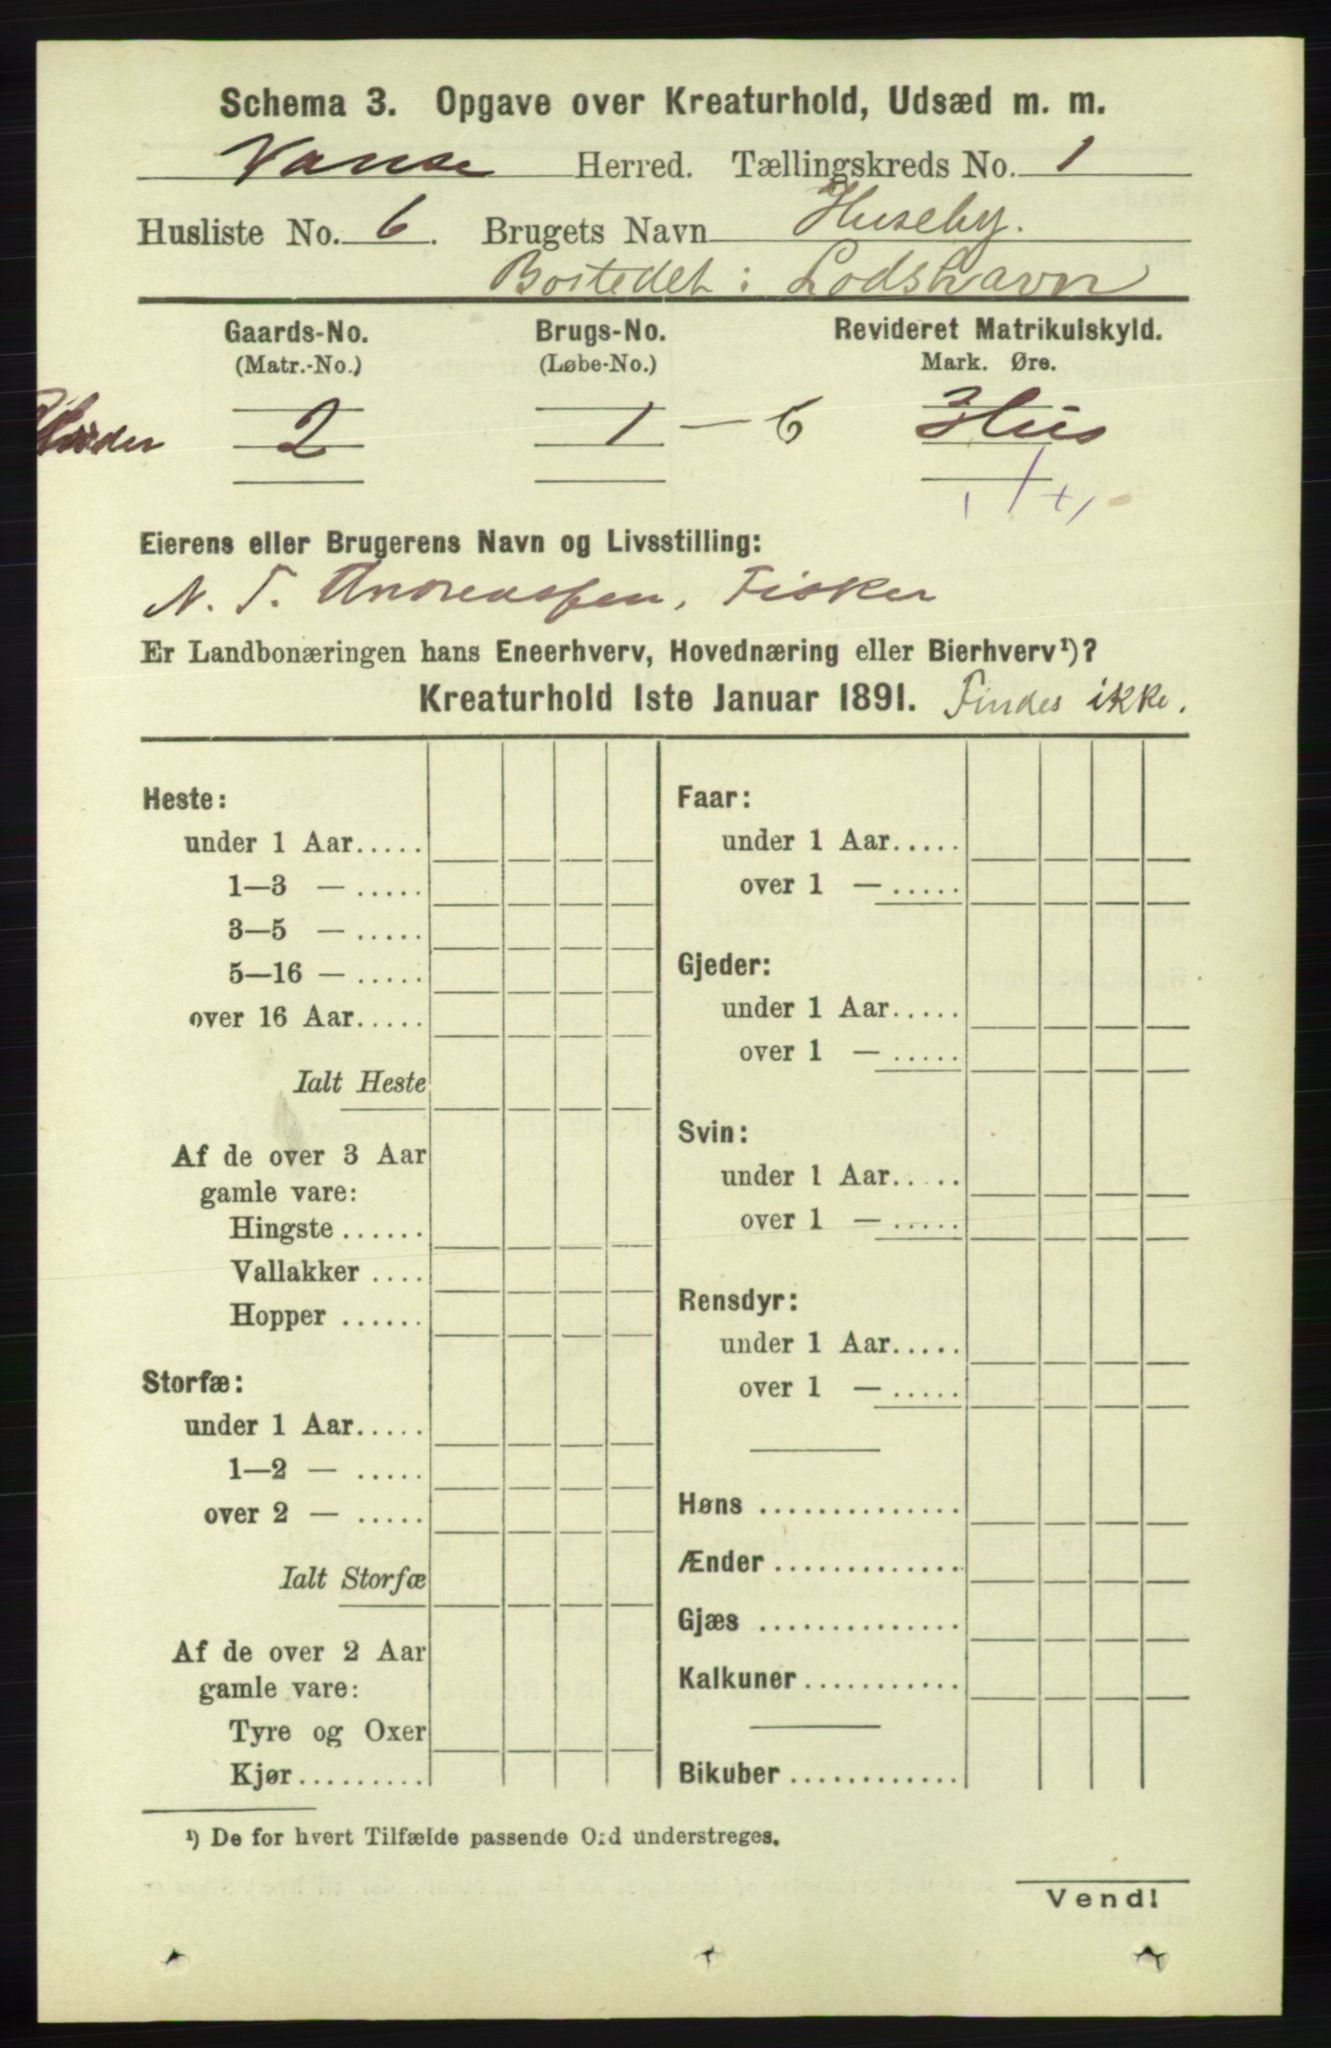 Schema 3. Opgave over Kreaturhold, Udsæd m. m.
Vanse Herred. Tællingskreds No. 1
Husliste No. 6. Brugets Navn Huseby.
Bostedet: Lodshavn
Gaards-No. Brugs-No. Revideret Matrikulskyld.
(Matr.-No.) (Løbe-No.) Mark. Øre.
2 1 — 6 Hus
Eierens eller Brugerens Navn og Livsstilling:
N. T. Andreassen, Fisker
Er Landbonæringen hans Eneerhverv, Hovednæring eller Bierhverv¹)?
Kreaturhold 1ste Januar 1891. Findes ikke.
Heste:
under 1 Aar.....
1—3 — .....
3—5 — .....
5—16 — .....
over 16 Aar.....
Ialt Heste
Af de over 3 Aar
gamle vare:
Hingste ......
Vallakker ....
Hopper ......
Storfæ:
under 1 Aar.....
1—2 — .....
over 2 — .....
Ialt Storfæ
Af de over 2 Aar
gamle vare:
Tyre og Oxer
Kjør.........
Faar:
under 1 Aar.....
over 1 — .....
Gjeder:
under 1 Aar.....
over 1 — .....
Svin:
under 1 Aar.....
over 1 — .....
Rensdyr:
under 1 Aar.....
over 1 — .....
Høns ..............
Ænder .............
Gjæs ..............
Kalkuner ...........
Bikuber ............
¹) De for hvert Tilfælde passende Ord understreges.
Vend!